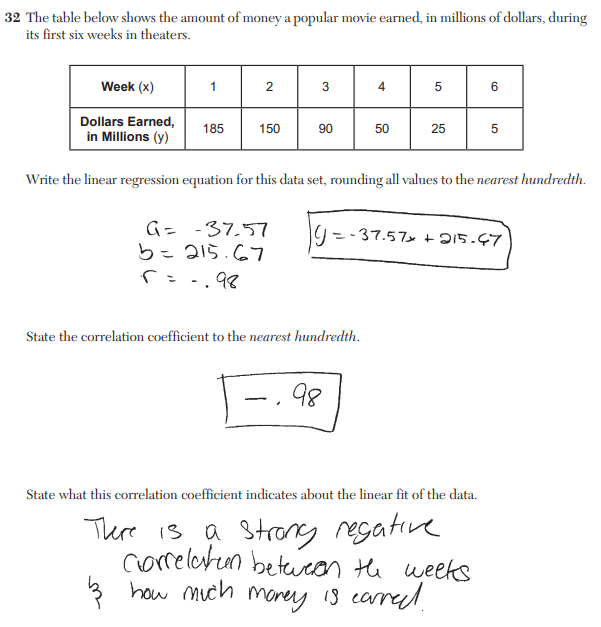 32 The table below shows the amount of money a popular movie earned, in millions of dollars, during
its first six weeks in theaters.
Week (x) 1 2 3 4 5 6
Dollars Earned,
in Millions (y) 185 150 90 50 25 5
Write the linear regression equation for this data set, rounding all values to the nearest hundredth.
a = -37.57
b = 215.67
r = -.98
y = -37.57x + 215.67
State the correlation coefficient to the nearest hundredth.
-.98
State what this correlation coefficient indicates about the linear fit of the data.
There is a strong negative
correlation between the weeks
& how much money is earned.